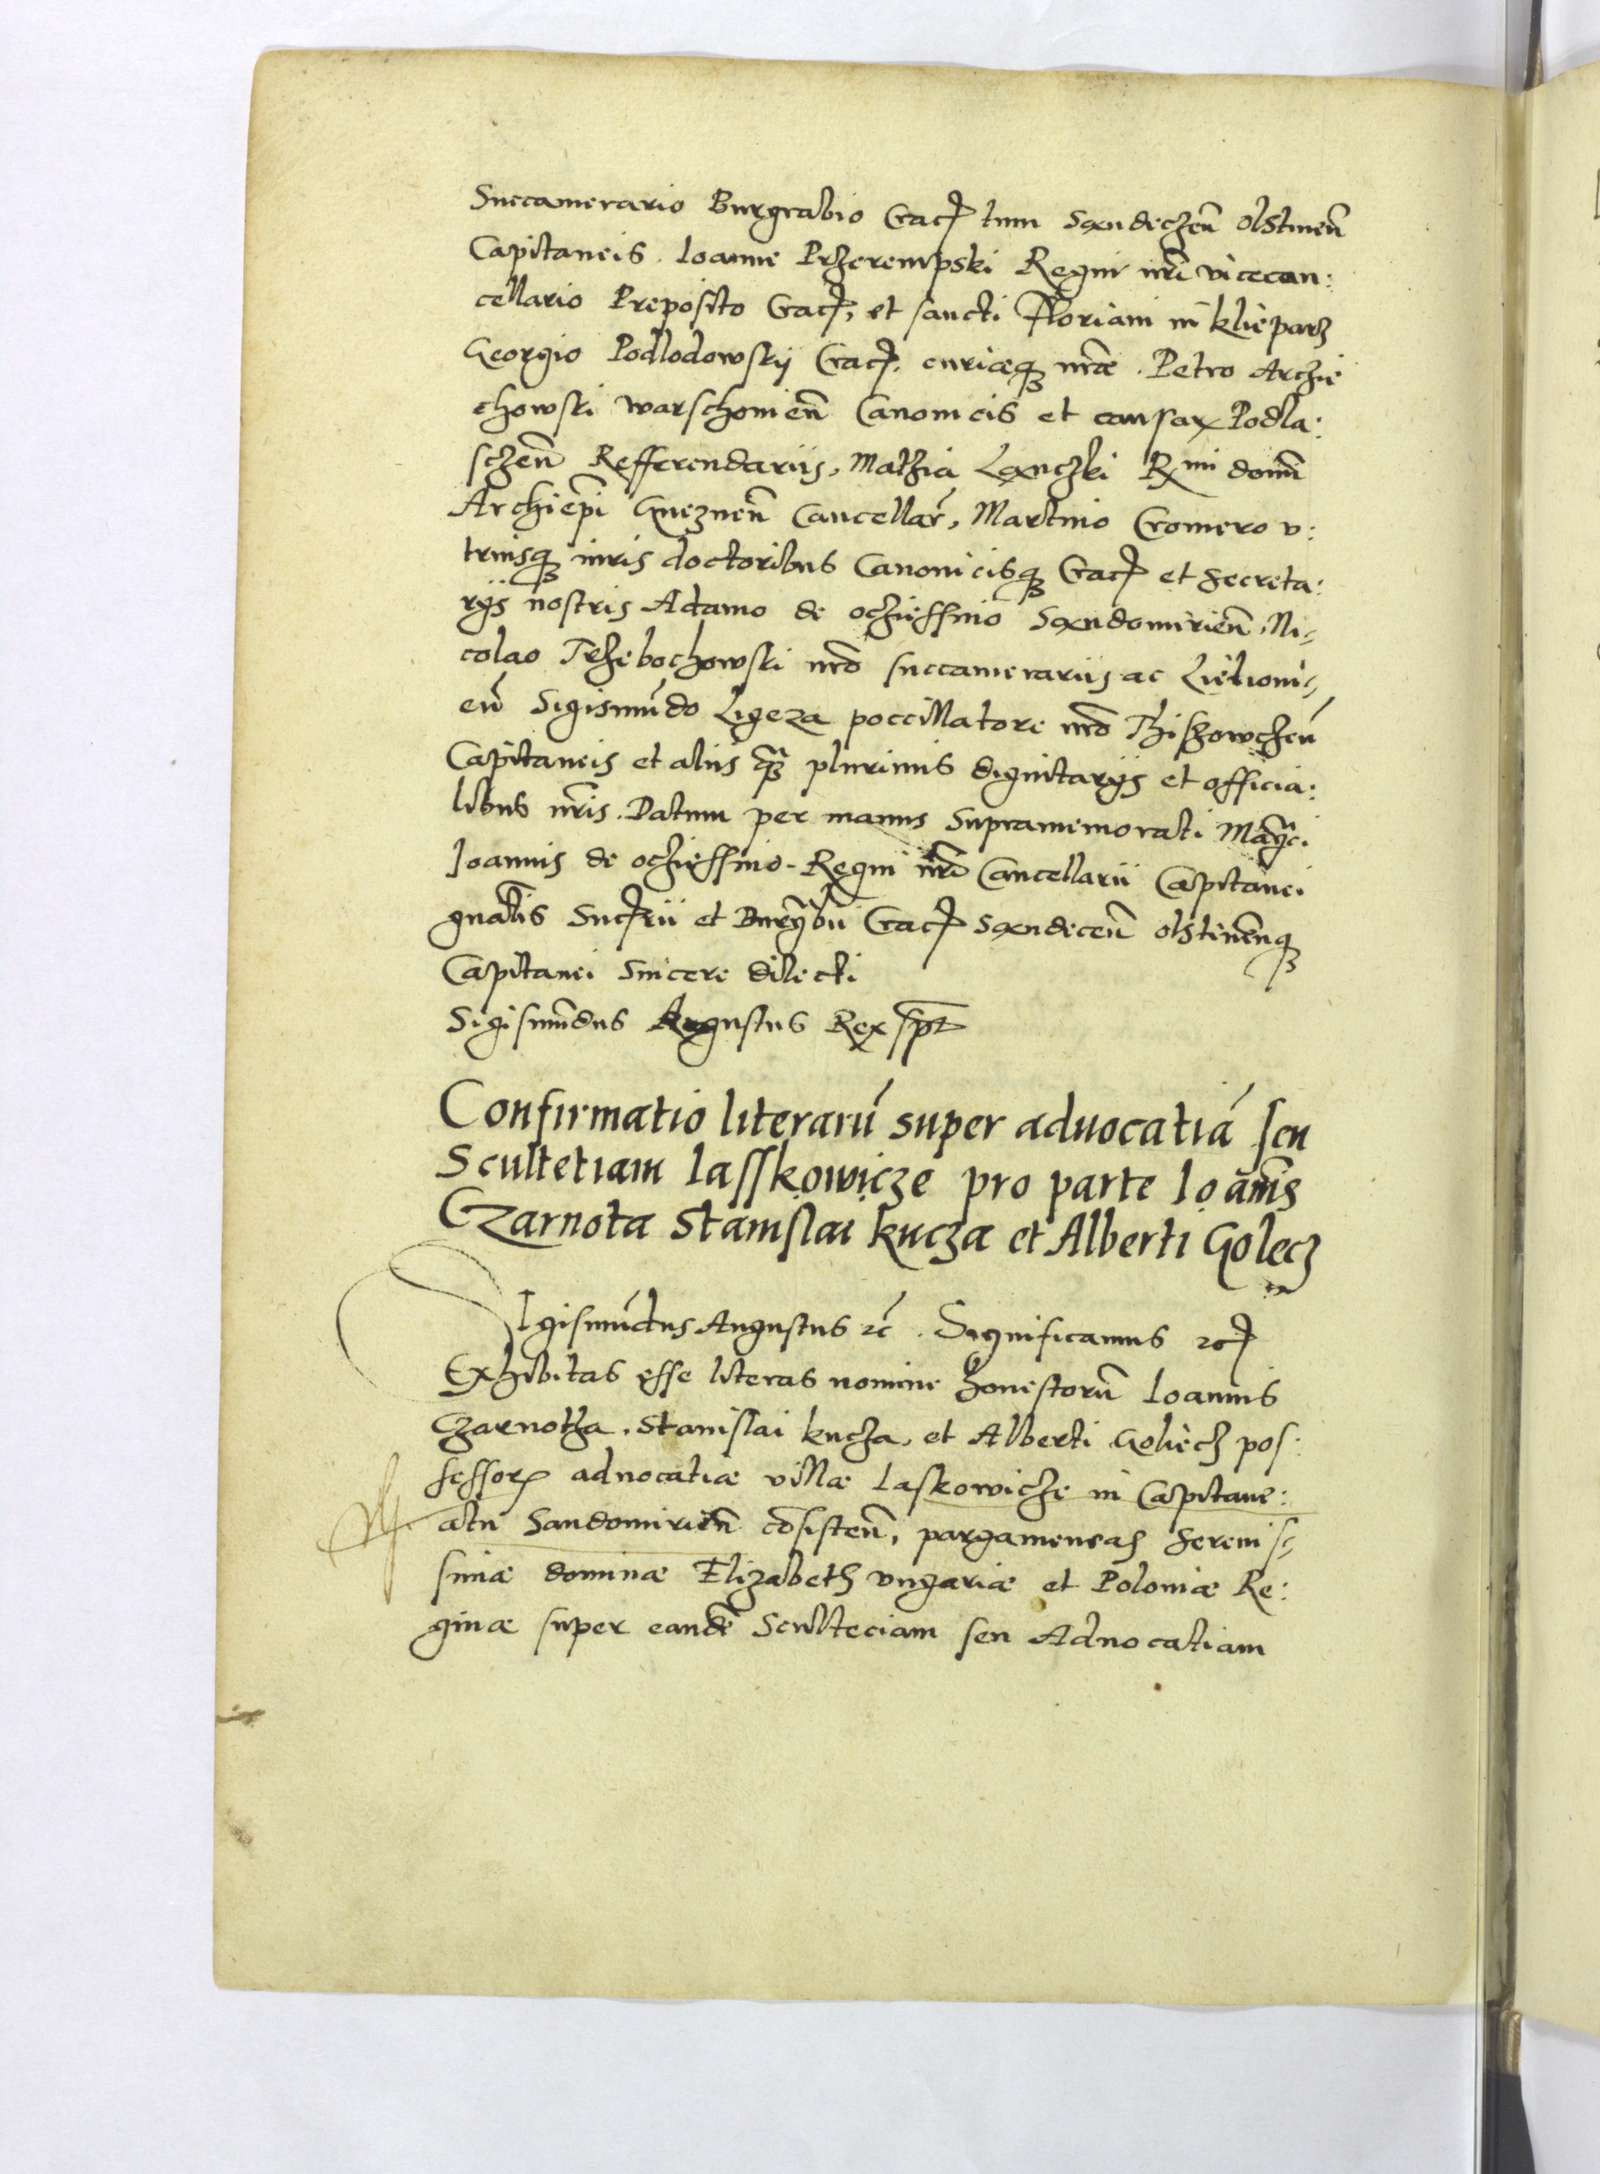 Succamerario Burgrabio Crac̃ tum Sandeczeñ Olstineñ
Capitaneis. Ioanne Przerempski Regni nrĩ vicecan:
cellario Preposito Crac̃, et sancti Floriani in klieparz
Georgio Podlodowskij Crac̃. curiaeq₃ nrae. Petro Arczie
chowski Warschouieñ Canonicis et causar̃ Podla:
sczeñ Refferendariis, Mathia Lanczki Rmi domĩ
Archiepĩ Gnezneñ Cancellar̃, Martino Cromero v:
triusq₃ iuris doctoribus Canonicisq₃ Crac̃ et Secreta:
rijs nostris Adamo de ocziessino Sandomirieñ, Ni-
colao Trzebochowski nrõ succamerariis ac Lielioni-
eñ Sigismũdo Ligeza poccillatore nrõ Thiszowczeñ
Capitaneis et aliis q̃₃ plurimis dignitarijs et officia:
libus nrĩs. Datum per manus Supramemorati Mag̃ci
Ioannis de ocziessino. Regni nrĩ Cancellarii Capitanei
gnãlis Succ̃rii et Burg̃bii Crac̃ Sandeceñ olstineñq₃
Capitanei Sincere dilecti
Sigismũdus Augustus Rex spt
Confirmatio literarũ super aduocatiã seu
Scultetiam lasskowicze pro parte Ioãnis
Czarnota Stanislai kucza et Alberti Golecz
SIgismũdus Augustus ec̃. Significamus ec̃
Exhibitas esse literas nomine honestorũ Ioannis
Czarnotha, Stanislai kucza, et Alberti Goliecz pos:
sessor̃ aduocatiae villae laskowicze in Capitane:
atu Sandomirieñ cõsisteñ, pargameneas Serenis-
simae dominae Elizabeth vngariae et Poloniae Re:
ginae super eandẽ Sculteciam seu Aduocatiam